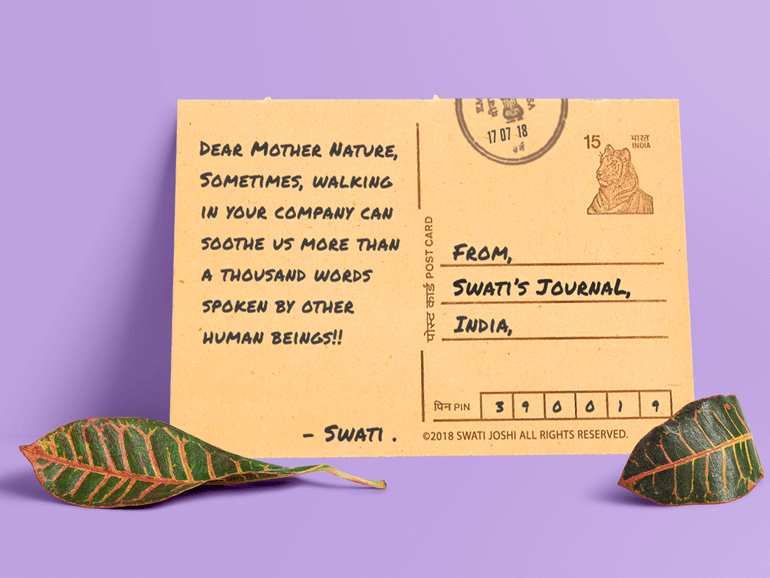 DEAR MOTHER NATURE,
SOMETIMES, WALKING
IN YOUR COMPANY CAN
SOOTHE US MORE THAN
A THOUSAND WORDS
SPOKEN BY OTHER
HUMAN BEINGS!!
- SWATI .
पोस्ट कार्ड POST CARD
17 07 18
15
भारत
INDIA
FROM,
SWATI'S JOURNAL,
INDIA,
पिन PIN 3 9 0 0 1 9
©2018 SWATI JOSHI ALL RIGHTS RESERVED.